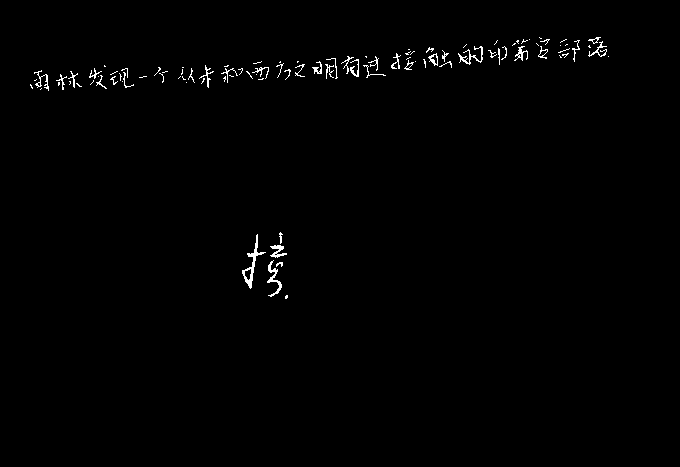 雨林发现一个从未和西方文明有过接触的印第安部落
接